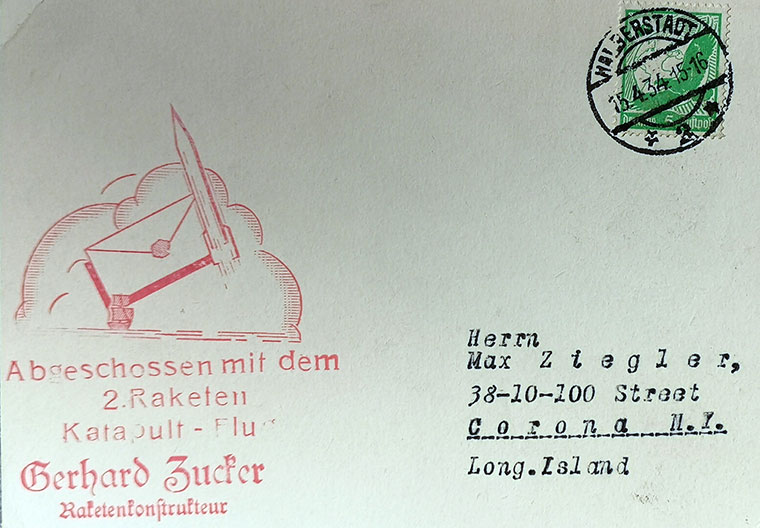 HALBERSTADT
15.4.34.15-16
2
Abgeschossen mit dem
2.Raketen
Katapult - Flug
Gerhard Zucker
Raketenkonſtrukteur
Herrn
Max Ziegler,
38-10-100 Street
Corona N.Y.
Long.Island